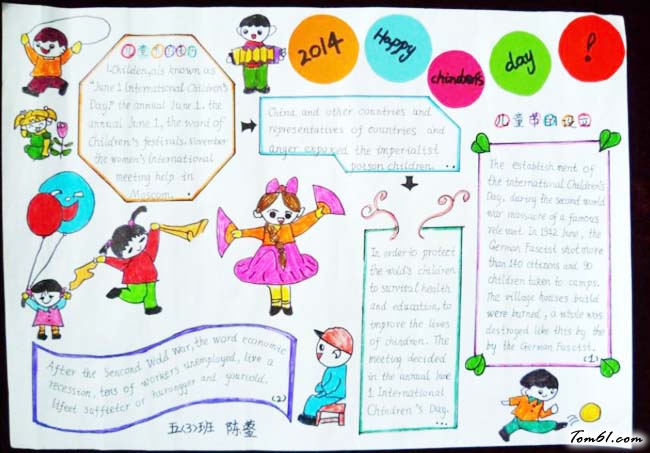 2014
Happy
chindren's
day
!
儿童节的
1.Children,als known as
"June 1 International Children's
Day," the annual June 1. the
annual June 1, the word of
Children's festivals. November
the women's international
meeting help in
Moscom.
China and other countries and
representatives of countries and
anger exposed the imperialist
poison children.
儿童节的设立
The establishment of
the international Children's
Day, during the second world
war massacre of a famous
In 1942 June, the
German Fascist shot more
than 140 citizens and 90
children taken to camps.
The village houses build
were burned, a whole was
destroged like this by the
by the German Fascist.
(1)
In order to protect
the world's children
to survival health
and education, to
improve the lives
of chindren. The
meeting decided
in the annual June
1 International
Chindren's Day.
After the Sencond Wold War, the word economic
recession, tens of workers unemployed, live a
lifeet suffieter or hurangger and
(2)
五(3)班 陈莹
Tom61.com